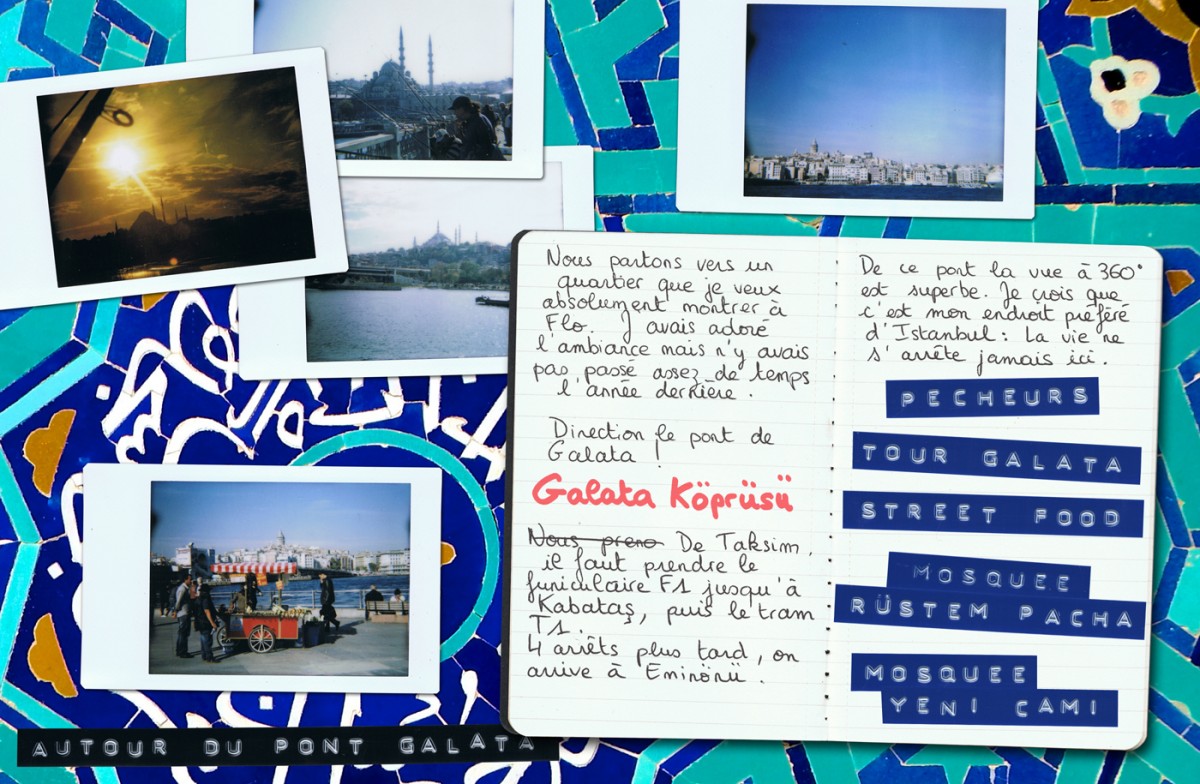 Nous partons vers un
quartier que je veux
absolument montrer à
Flo. J'avais adoré
l'ambiance mais n'y avais
pas passé assez de temps
l'année dernière.
Direction le pont de
Galata !
Galata Köprüsü
Nous preno De Taksim,
il faut prendre le
funiculaire F1 jusqu'à
Kabataş, puis le tram
T1.
4 arrêts plus tard, on
arrive à Eminönü.
De ce pont la vue à 360°
est superbe. Je crois que
c'est mon endroit préféré
d'Istanbul : La vie ne
s'arrête jamais ici.
PECHEURS
TOUR GALATA
STREET FOOD
MOSQUEE
RÜSTEM PACHA
MOSQUEE
YENI CAMI
AUTOUR DU PONT GALATA